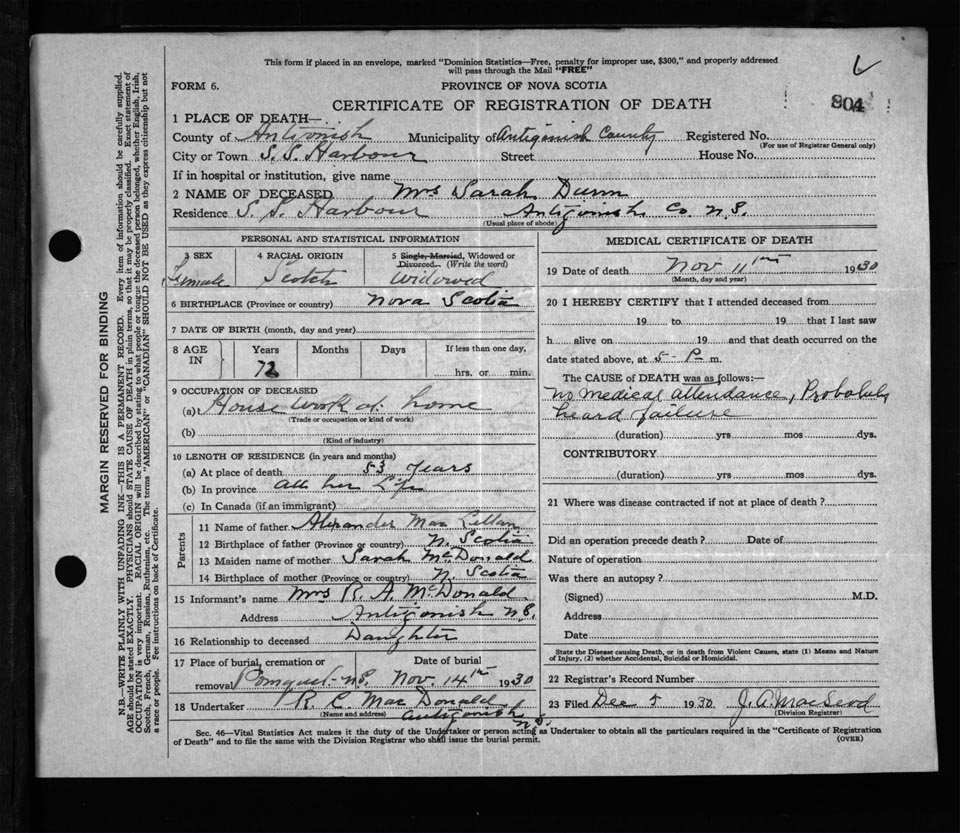 This form if placed in an envelope, marked "Dominion Statistics—Free, penalty for improper use, $300," and properly addressed
will pass through the Mail "FREE"
FORM 6.
PROVINCE OF NOVA SCOTIA
804
CERTIFICATE OF REGISTRATION OF DEATH
1 PLACE OF DEATH—
County of Antigonish Municipality of Antigonish County Registered No.
(For use of Registrar General only)
City or Town S. S. Harbour Street House No.
If in hospital or institution, give name
2 NAME OF DECEASED Mrs Sarah Dunn
Residence S. S. Harbour Antigonish Co N.S.
(Usual place of abode)
PERSONAL AND STATISTICAL INFORMATION
3 SEX
Female
4 RACIAL ORIGIN
Scotch
5 Single, Married, Widowed or
Divorced. (Write the word)
Widowed
6 BIRTHPLACE (Province or country) Nova Scotia
7 DATE OF BIRTH (month, day and year)
8 AGE IN
Years Months Days If less than one day,
hrs. or min.
9 OCCUPATION OF DECEASED
(a) House work at home
(Trade or occupation or kind of work)
(b)
(Kind of industry)
10 LENGTH OF RESIDENCE (in years and months)
(a) At place of death 53 years
(b) In province All her Life
(c) In Canada (if an immigrant)
Parents
11 Name of father Alexander Mac Lellan
12 Birthplace of father (Province or country) N. Scotia
13 Maiden name of mother Sarah McDonald
14 Birthplace of mother (Province or country) N. Scotia
15 Informant's name Mrs R. A. McDonald
Address Antigonish N.S.
16 Relationship to deceased Daughter
17 Place of burial, cremation or Date of burial
removal Pomquet N.S. Nov. 14th 1930
18 Undertaker R. C. Mac Donald
(Name and address) Antigonish N.S.
MEDICAL CERTIFICATE OF DEATH
19 Date of death Nov 11th 1930
(Month, day and year)
20 I HEREBY CERTIFY that I attended deceased from
19 to 19 that I last saw
h alive on 19 and that death occurred on the
date stated above, at 5 P m.
The CAUSE of DEATH was as follows:—
No medical attendance, Probably
heard failure
(duration) yrs mos dys.
CONTRIBUTORY
(duration) yrs mos dys.
21 Where was disease contracted if not at place of death?
Did an operation precede death? Date of
Nature of operation
Was there an autopsy?
(Signed) M.D.
Address
Date
State the Disease causing Death, or in death from Violent Causes, state (1) Means and Nature
of Injury, (2) whether Accidental, Suicidal or Homicidal.
22 Registrar's Record Number
23 Filed Dec 5 1930 J. A. MacLeod
(Division Registrar)
Sec. 46—Vital Statistics Act makes it the duty of the Undertaker or person acting as Undertaker to obtain all the particulars required in the "Certificate of Registration
of Death" and to file the same with the Division Registrar who shall issue the burial permit.
(OVER)
MARGIN RESERVED FOR BINDING
N.B.—WRITE PLAINLY WITH UNFADING INK—THIS IS A PERMANENT RECORD. Every item of information should be carefully supplied.
AGE should be stated EXACTLY. PHYSICIANS should STATE CAUSE OF DEATH in plain terms, so that it may be properly classified. Exact statement of
OCCUPATION is very important. RACIAL ORIGIN will be described by stating to what people or tongue the deceased person belonged, whether English, Irish,
Scotch, French, German, Russian, Ruthenian, etc. The terms "AMERICAN" or "CANADIAN" SHOULD NOT BE USED as they express citizenship but not
a race or people. See instructions on back of Certificate.